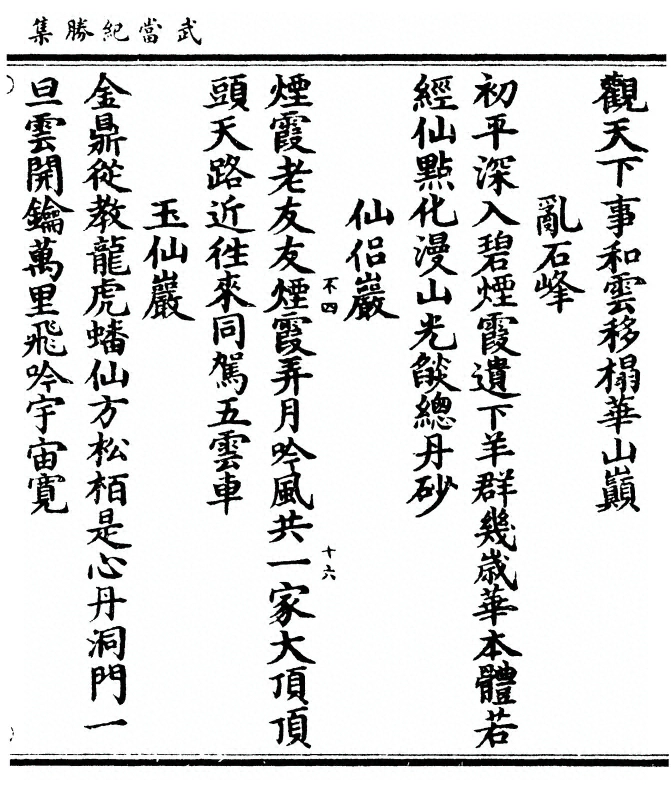 武當紀勝集
觀天下事和雲移榻華山巔
亂石峰
初平深入碧煙霞遺下羊群幾歲華本體若
經仙點化漫山光燄總丹砂
仙侶巖
不四
十六
煙霞老友友煙霞弄月吟風共一家大頂頂
頭天路近徃來同駕五雲車
玉仙巖
金鼎從教龍虎蟠仙方松栢是心丹洞門一
旦雲開鑰萬里飛吟宇宙寬